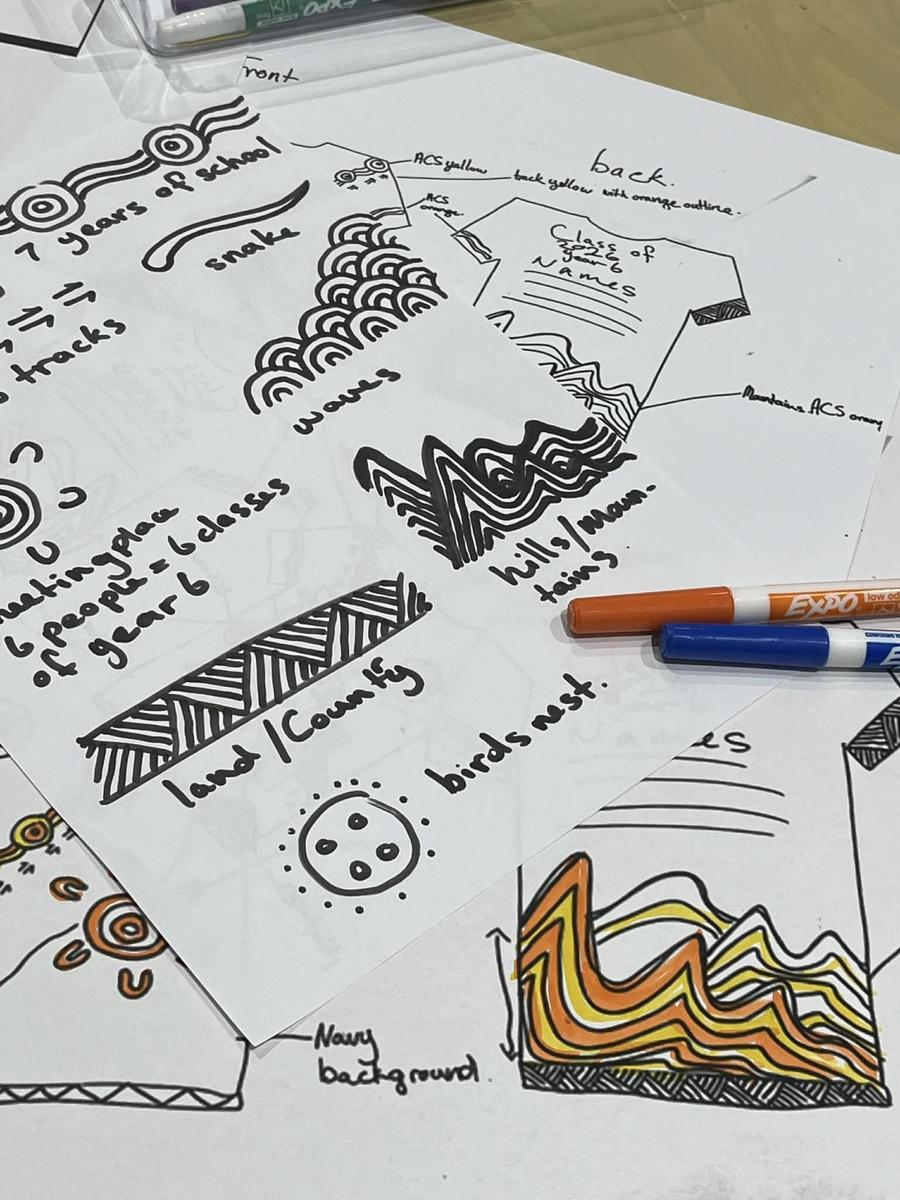 EXPO
front
7 years of school
snake
tracks
waves
meeting place
6 people = 6 classes
of year 6
hills/moun-
tains.
land/County
birds nest.
ACS yellow
track yellow with orange outline.
ACS
orange
back.
Class of
2026
year 6
Names
Mountains ACS orang
EXPO
low od
Navy
background.